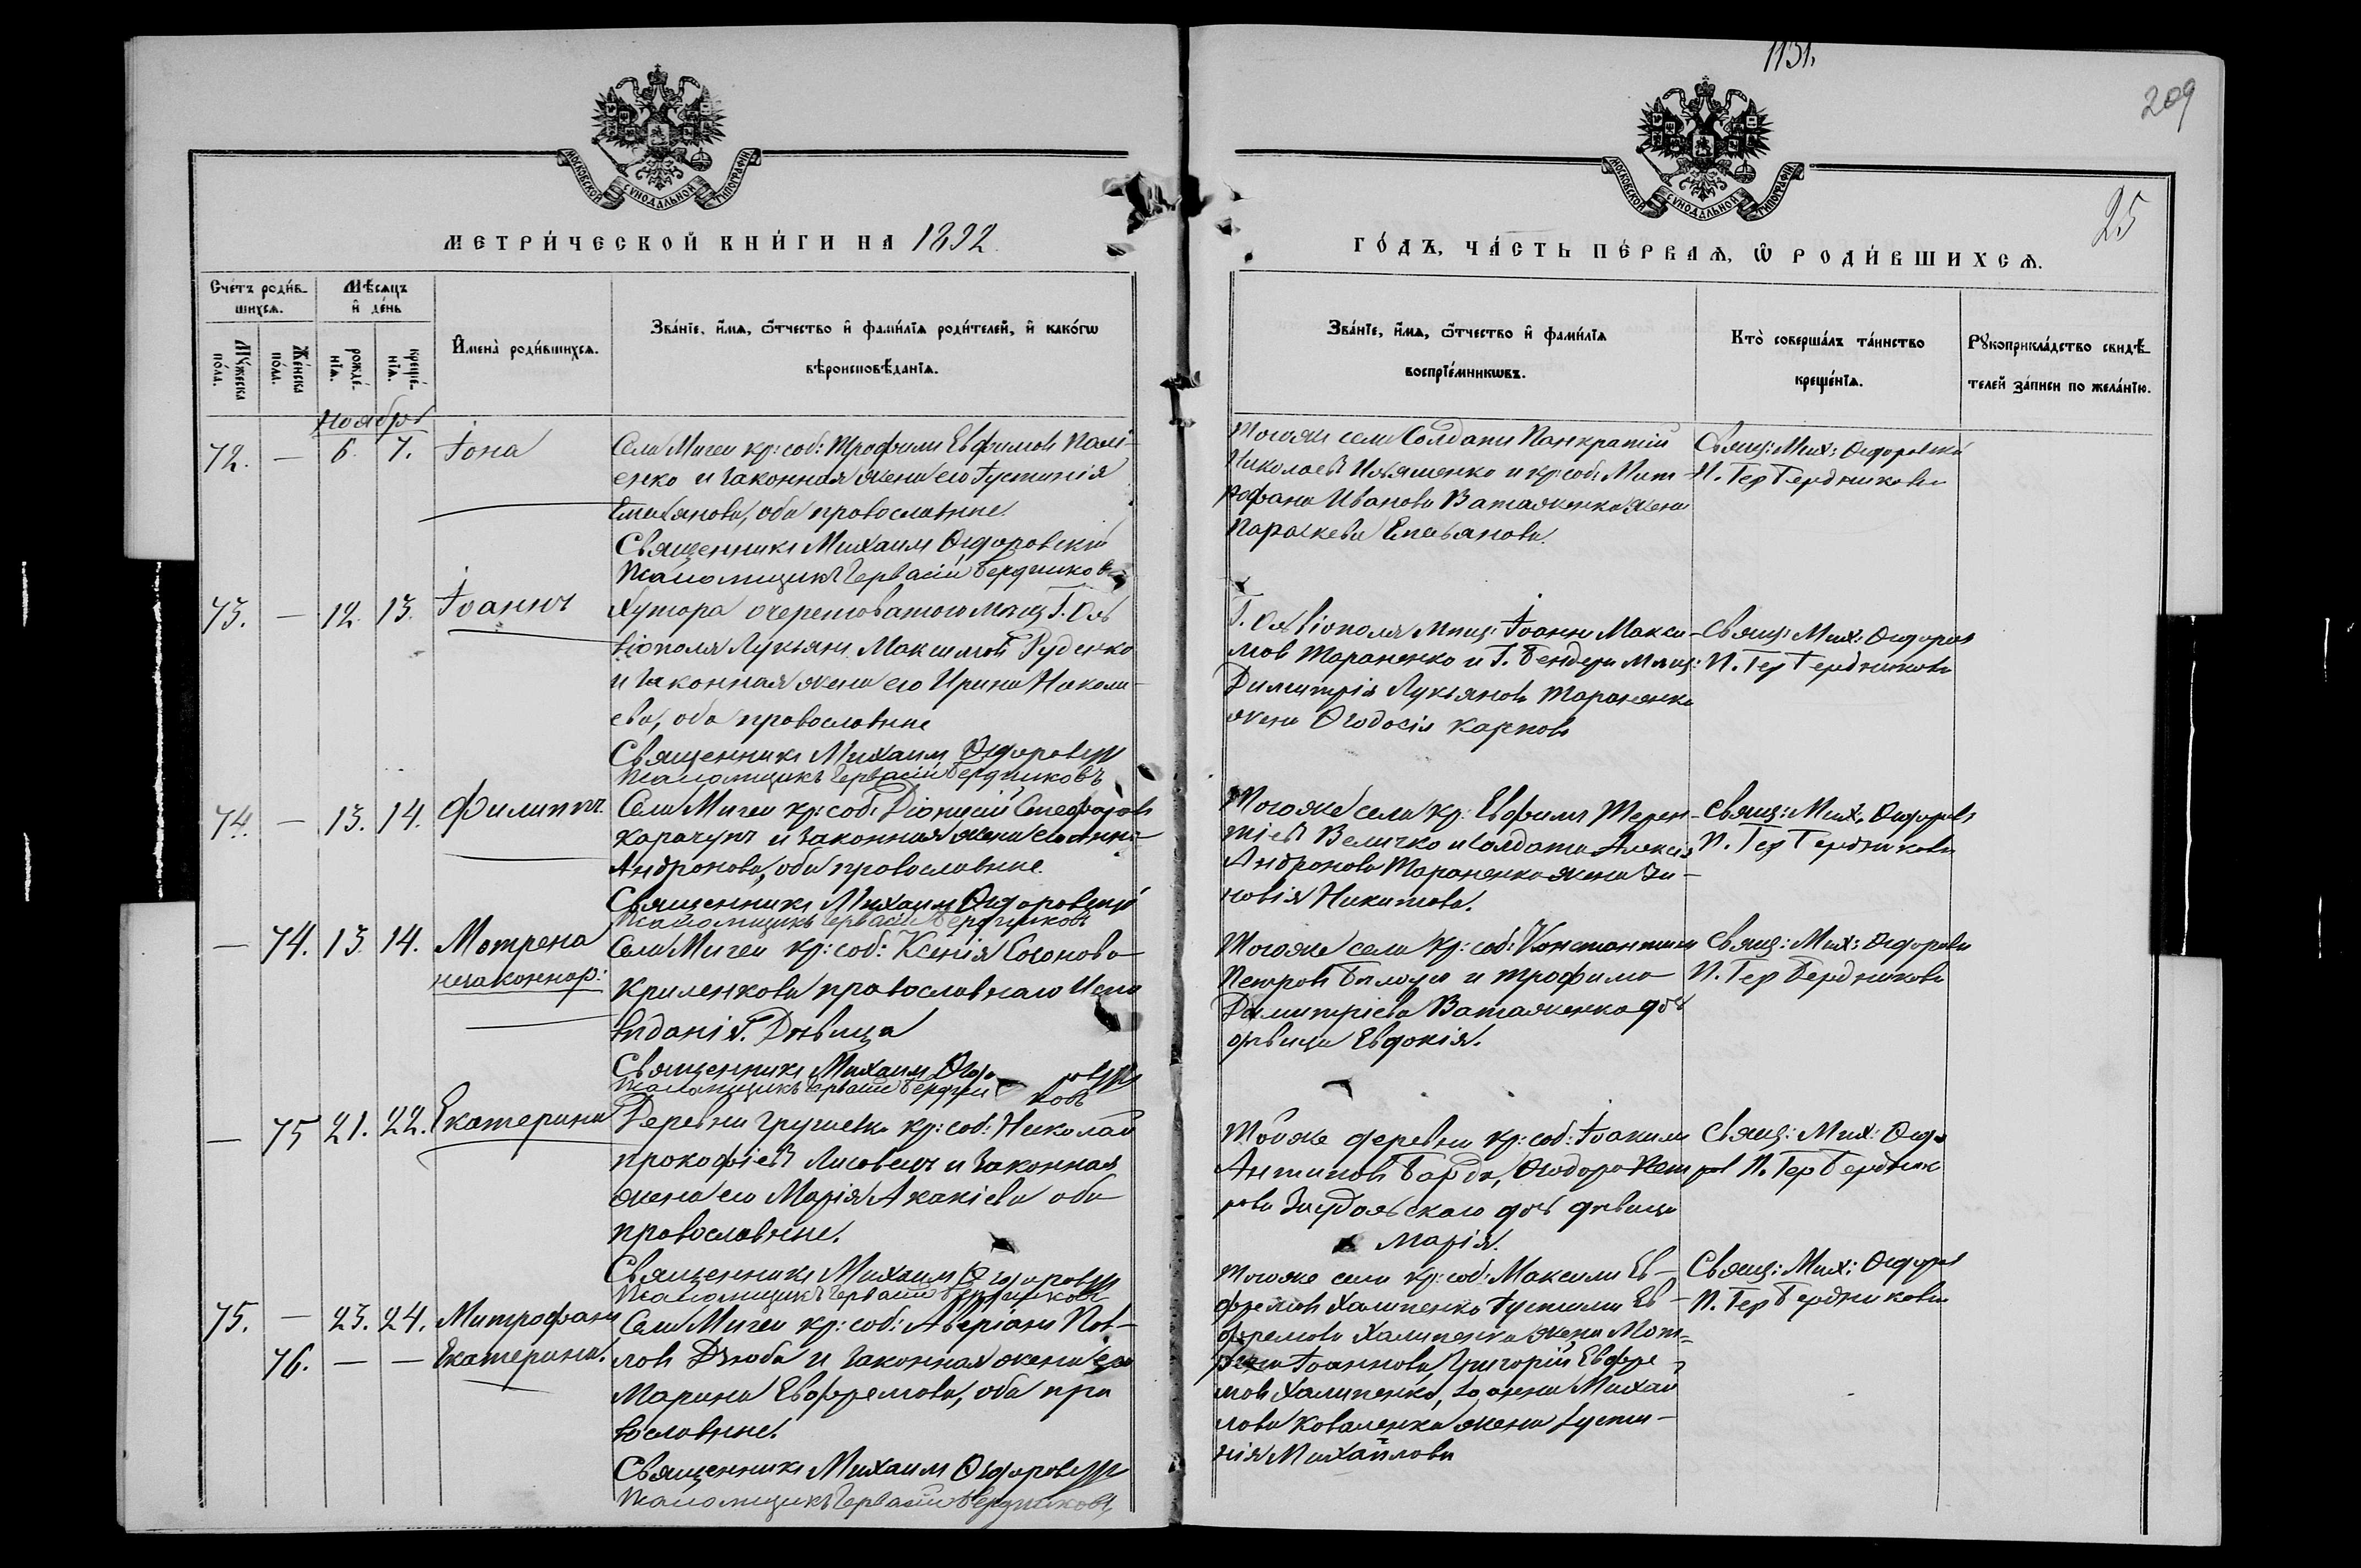 1131.
209
25
МОСКОВСКОЙ СѴНОДАЛЬНОЙ ТИПОГРАФІИ
МОСКОВСКОЙ СѴНОДАЛЬНОЙ ТИПОГРАФІИ
МЕТРИ́ЧЕСКОЙ КНИ́ГИ НА 1892
ГО́ДЪ, ЧА́СТЬ ПЕ́РВАѦ, Ѿ РОДИ́ВШИХСѦ.
Сче́тъ роди́в-
шихсѧ.
Мѣ́сѧцъ
и҆ де́нь
Мꙋ́жеска
по́ла.
Же́нска
по́ла.
рожде́-
нїѧ.
креще́-
нїѧ.
И҆мена̀ роди́вшихсѧ.
Зва́нїе, и҆́мѧ, ѻ҆́тчество и҆ фами́лїѧ роди́телей, и҆ како́гѡ
вѣроисповѣ́данїѧ.
Зва́нїе, и҆́мѧ, ѻ҆́тчество и҆ фами́лїѧ
воспрїе́мникѡвъ.
Кто̀ соверша́лъ та́инство
креще́нїѧ.
Рꙋкоприкла́дство свидѣ́-
телей за́писи по жела́нїю.
Ноябрь
72. — 6. 7. Іона
Села Мигеи кр: соб: Трофимъ Евфимовъ Палі-
енко и законная жена его Іустинія
Емильянова, оба православные.
Священникъ Михаилъ Ѳедоровскій
Псаломщикъ Гервасій Бердниковъ
Тогоже села Солдатъ Панкратій
Николаевъ Ильяшенко и кр: соб: Мит
рофана Иванова Ватаженка жена
Параскева Емельянова.
Свящ: Мих: Ѳедоровскій
П. Гер Бердниковъ
73. — 12. 13. Іоаннъ
Хутора Очеретоватого мещ Г. Оль
віополя Лукьянъ Максимовъ Руденко
и законная жена его Ирина Никола-
ева, оба православные
Священникъ Михаилъ Ѳедоровскій
Псаломщикъ Гервасій Бердниковъ
Г. Ольвіополя мещ: Іоаннъ Макси-
мов Тараненко и Г. Бендеръ мещ:
Димитрія Лукьянова Тараненка
жена Ѳеодосія Карпова
Свящ: Мих: Ѳедоров
П. Гер Бердниковъ
74. — 13. 14. Филиппъ.
Села Мигеи кр: соб: Діонисій Стефановъ
Карачунъ и законная жена его Анна
Андронова, оба православные.
Священникъ Михаилъ Ѳедоровскій
Псаломщикъ Гервасій Бердниковъ
Тогоже села кр: Евфимъ Терен-
тіевъ Величко и солдата Алексія
Андронова Тараненка жена Зи-
новія Никитова.
Свящ: Мих. Ѳедоровъ
П. Гер Бердниковъ
— 74. 13. 14. Мотрона
незаконнор:
Села Мигеи кр: соб: Ксенія Созонова
Криленкова православнаго испо
вѣданія. Дѣвица
Священникъ Михаилъ Ѳедоровскій
Псаломщикъ Гервасій Бердниковъ
Тогоже села кр: соб: Константинъ
Петровъ и Трофима
Димитріева Ватаженка дочь
дѣвица Евдокія.
Свящ: Мих: Ѳедоровъ
П. Гер Бердниковъ
— 75 21. 22. Екатерина
Деревни Грушевки кр: соб: Николай
Прокофіевъ Лисовецъ и законная
жена его Марія Акакіева оба
православные.
Священникъ Михаилъ Ѳедоровскій
Псаломщикъ Гервасій Бердниковъ
Тойже деревни кр: соб: Іоакимъ
Антиповъ Барда, Ѳеодора Пет
рова дочь дѣвица
Марія.
Свящ: Мих: Ѳедо
ров П. Гер Бердник
75. — 23. 24. Митрофанъ
76. — — Екатерина.
Села Мигеи кр: соб: Аверіанъ Пав-
ловъ Дзюба и законная жена его
Марина Евфремова, оба пра
вославные.
Священникъ Михаилъ Ѳедоровскій
Псаломщикъ Гервасій Бердниковъ
Тогоже села кр: соб: Максимъ Ев-
фремовъ Халипенко Ев-
фремова Халипенка жена Мот-
рона Іоаннова, Григорій Евфре-
мовъ Халипенко, Іоанна Михай
лова Коваленка жена Іусти-
нія Михайлова
Свящ: Мих: Ѳедоров
П. Гер Бердниковъ